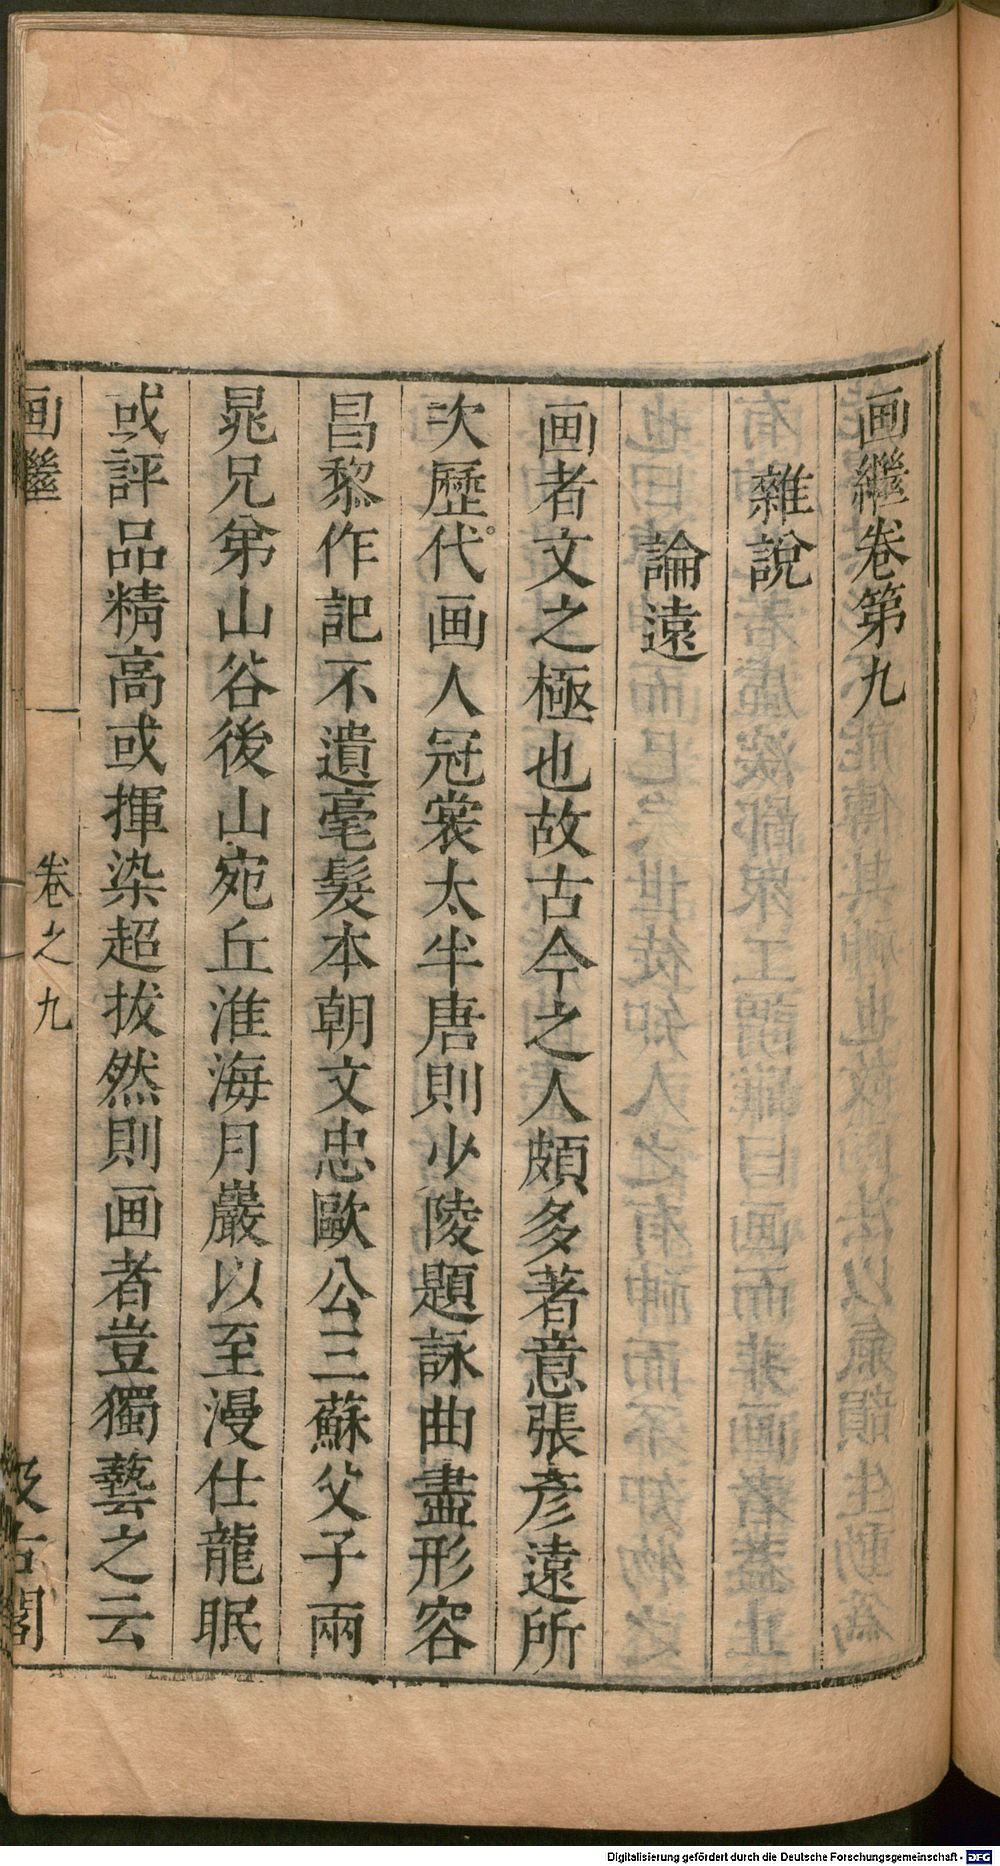 画繼卷第九
雜說
論遠
画者文之極也故古今之人頗多著意張彥遠所
次歷代画人冠裳太半唐則少陵題詠曲盡形容
昌黎作記不遺毫髮本朝文忠歐公三蘇父子兩
晁兄弟山谷後山宛丘淮海月巖以至漫仕龍眠
或評品精高或揮染超拔然則画者豈獨藝之云
画繼 卷之九 汲古閣
Digitalisierung gefördert durch die Deutsche Forschungsgemeinschaft - DFG